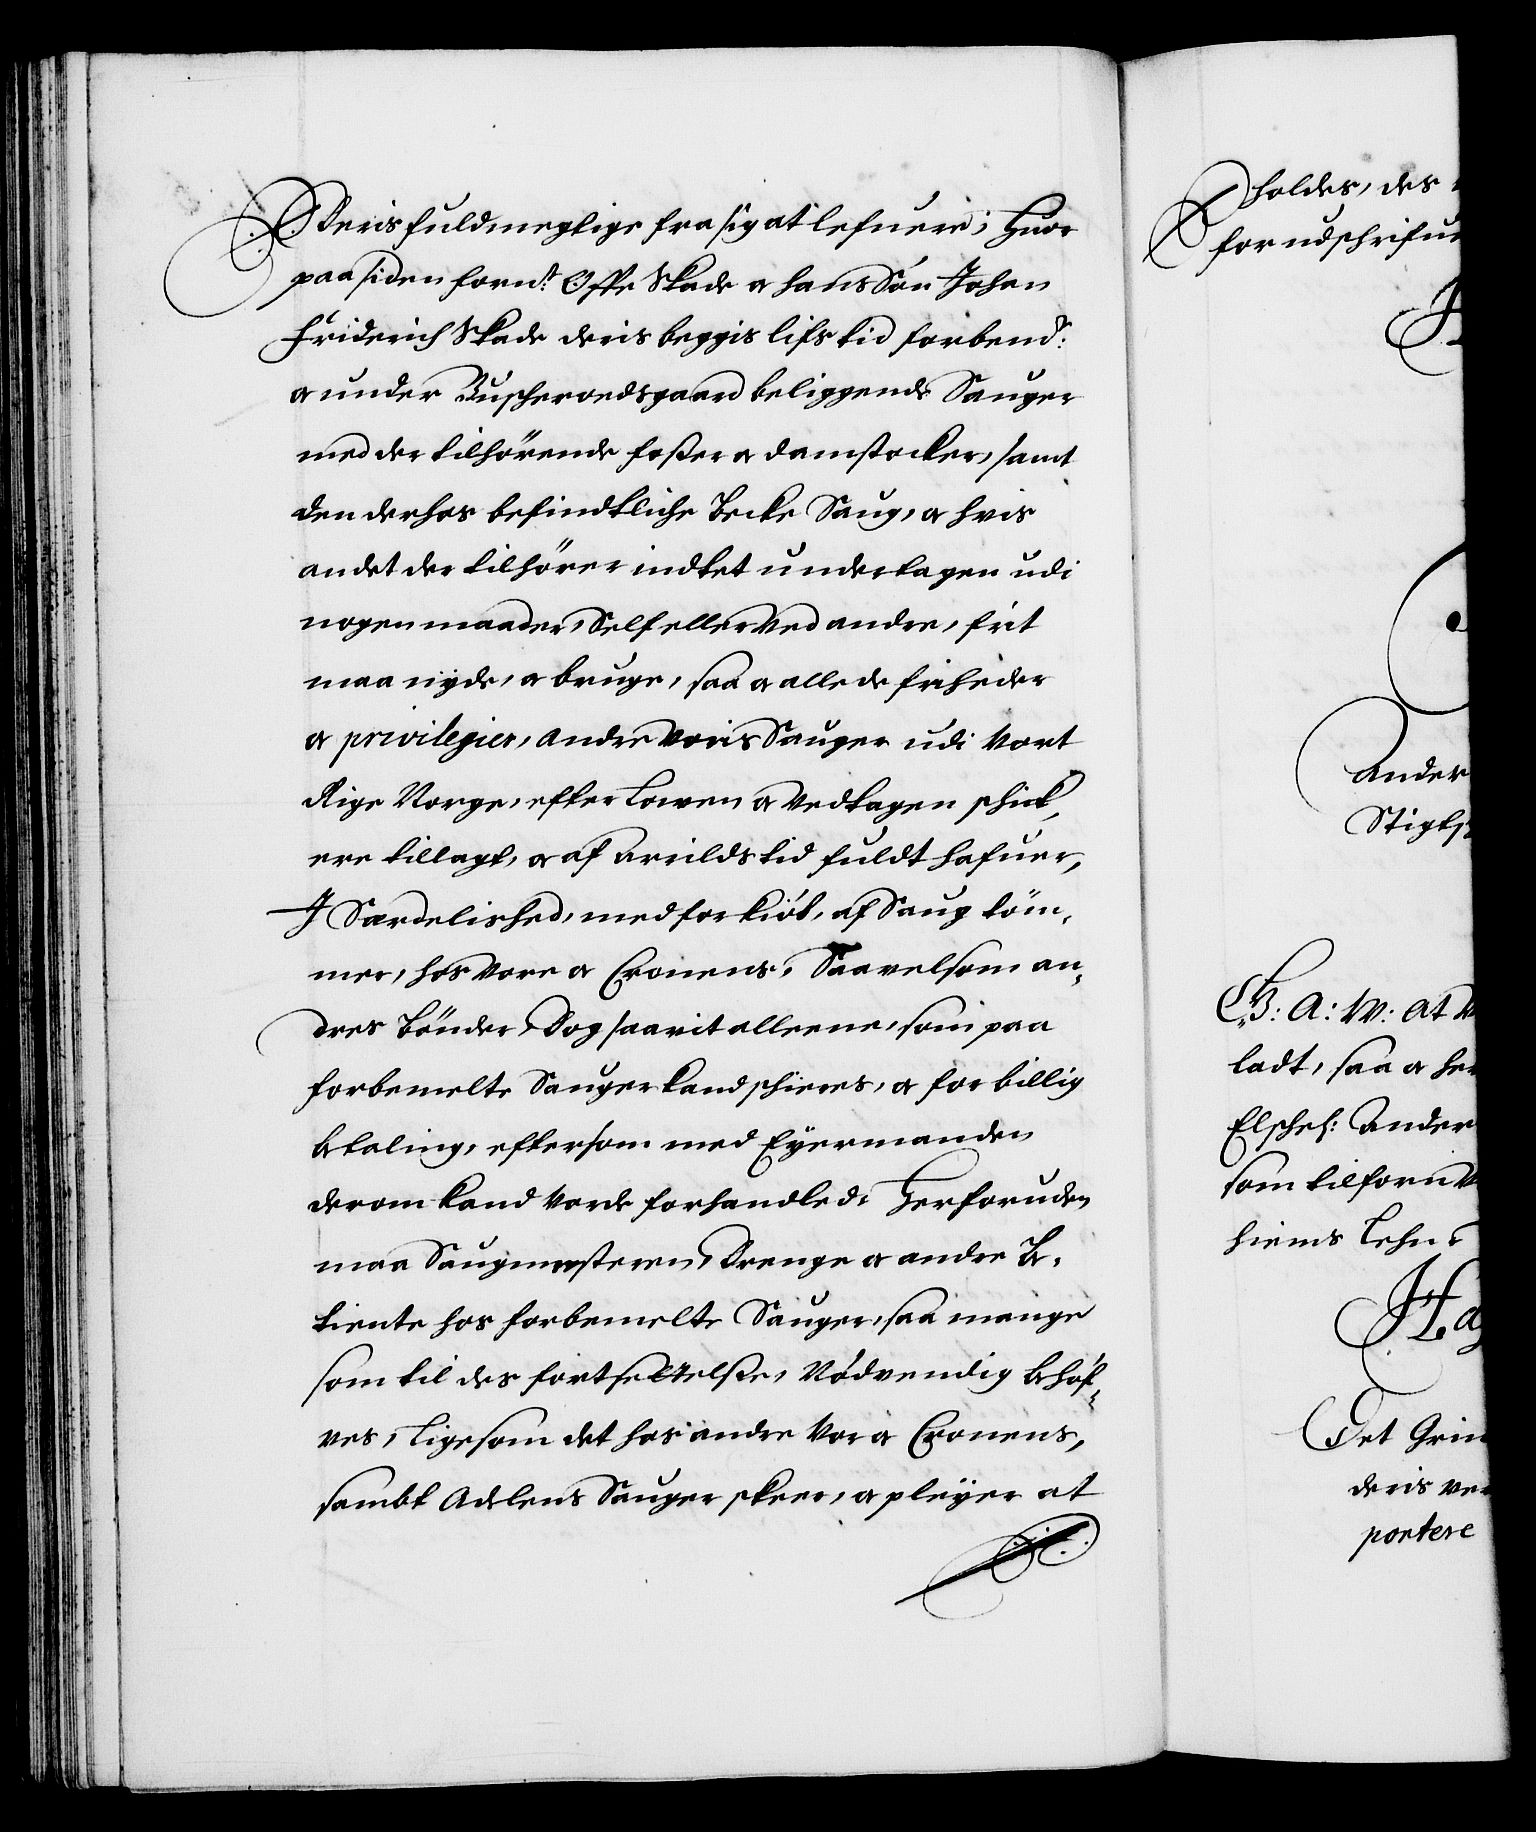 Deris fuldmegtige fra sig at lefuere; Huor
paa siden fornt: Offe Skade oc hans Søn Johan
Friderich Skade deris beggis lifs tid forbend:
oc under Buscheroedsgaard beliggende Sauger
med der tilhörende foßer oc damstocker, samt
den derhos befindtliche Becke Saug, oc hvis
andet der tilhörer indtet undertagen udi
nogen maader, Self eller ved andre, frit
maa nyde, oc bruge, saa oc alle de friheder
oc privilegier, andre voris Sauger udi Vort
Rige Norge, efter Lowen oc vedtagen schick,
ere tillagt, oc af arrilds tid fuldt hafuer,
I Særdelished, med forkiøb, af Saug töm,
mer, hos vore oc Cronens, Saavelsom an,
dres Bönder, Dog saavit alleene, som paa
forbemelte Sauger kand schieres, oc for billig
betaling, eftersom med Eyermanden
derom kand vorde forhandled, Herforuden
maa Saugmesteren, Drenge oc andre Be,
tiente hos forbemelte Sauger, saa mange
som til des fortsettelße, Nødvendig behøf,
ves, ligesom det hos andre Vor oc Cronens,
sambt Adelens Sauger skeer, oc pleyer at
holdes, des
for udschrifue
Ander
Stigts
G: A: W: At V
ladt, saa oc her
Elschel: Ander
som tilforn V
hiems Lehn
Det Grin
deris ver
portere